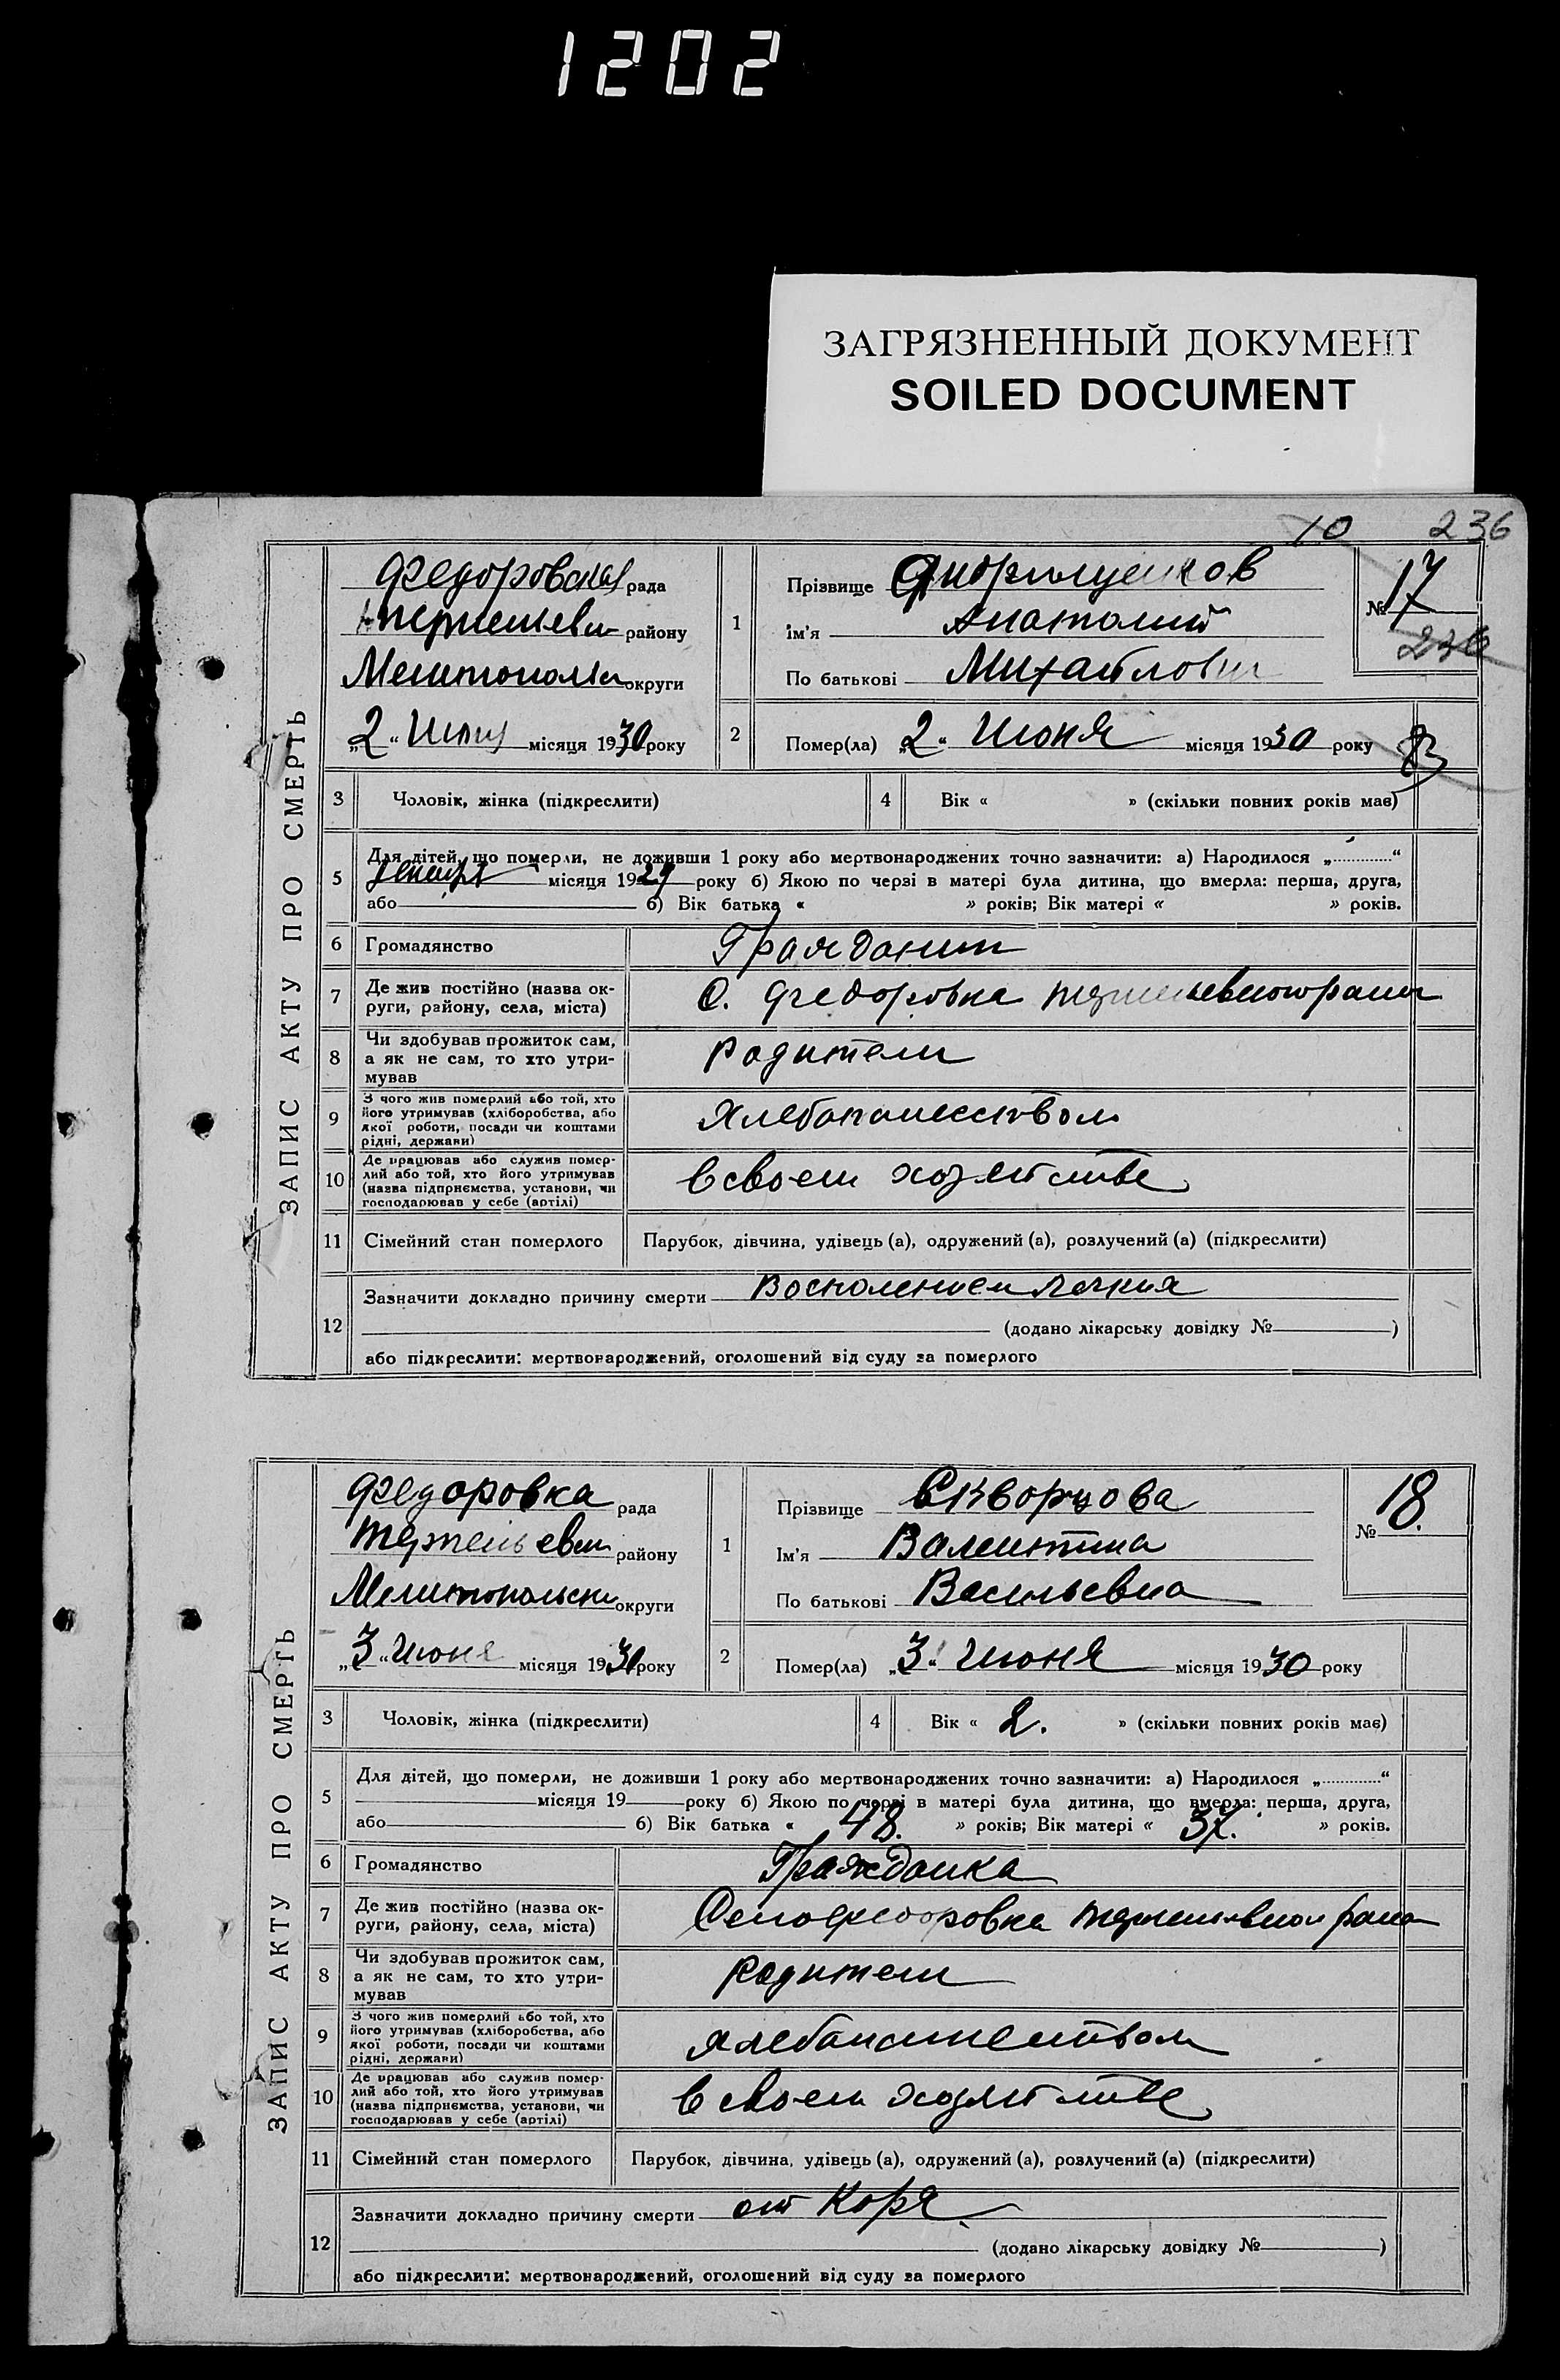 1202
ЗАГРЯЗНЕННЫЙ ДОКУМЕНТ
SOILED DOCUMENT
10 236
ЗАПИС АКТУ ПРО СМЕРТЬ
Федоровская рада
району
округи
„2“ місяця 1930 року
1 Прізвище
Ім'я Анатолий
По батькові Михайлович
№ 17
236
2 Помер(ла) „2“ Июня місяця 1930 року
3 Чоловік, жінка (підкреслити)
4 Вік « » (скільки повних років має)
5 Для дітей, що померли, не доживши 1 року або мертвонароджених точно зазначити: а) Народилося „ “
місяця 1929 року б) Якою по черзі в матері була дитина, що вмерла: перша, друга,
або б) Вік батька « » років; Вік матері « » років.
6 Громадянство Гражданин
7 Де жив постійно (назва ок-
руги, району, села, міста) С. Федоровка
8 Чи здобував прожиток сам,
а як не сам, то хто утри-
мував Родители
9 З чого жив померлий або той, хто
його утримував (хліборобства, або
якої роботи, посади чи коштами
рідні, держави)
10 Де працював або служив помер-
лий або той, хто його утримував
(назва підприємства, установи, чи
господарював у себе (артілі) в своем хозяйстве
11 Сімейний стан померлого Парубок, дівчина, удівець (а), одружений (а), розлучений (а) (підкреслити)
12 Зазначити докладно причину смерти
(додано лікарську довідку № )
або підкреслити: мертвонароджений, оголошений від суду за померлого
ЗАПИС АКТУ ПРО СМЕРТЬ
Федоровка рада
району
округи
„3“ Июня місяця 1930 року
1 Прізвище Скворцова
Ім'я Валентина
По батькові Васильевна
№ 18.
2 Помер(ла) „3“ Июня місяця 1930 року
3 Чоловік, жінка (підкреслити)
4 Вік « 2. » (скільки повних років має)
5 Для дітей, що померли, не доживши 1 року або мертвонароджених точно зазначити: а) Народилося „ “
місяця 19 року б) Якою по черзі в матері була дитина, що вмерла: перша, друга,
або б) Вік батька « 48. » років; Вік матері « 37. » років.
6 Громадянство Гражданка
7 Де жив постійно (назва ок-
руги, району, села, міста)
8 Чи здобував прожиток сам,
а як не сам, то хто утри-
мував Родители
9 З чого жив померлий або той, хто
його утримував (хліборобства, або
якої роботи, посади чи коштами
рідні, держави)
10 Де працював або служив помер-
лий або той, хто його утримував
(назва підприємства, установи, чи
господарював у себе (артілі) в своем хозяйстве
11 Сімейний стан померлого Парубок, дівчина, удівець (а), одружений (а), розлучений (а) (підкреслити)
12 Зазначити докладно причину смерти от Коря
(додано лікарську довідку № )
або підкреслити: мертвонароджений, оголошений від суду за померлого